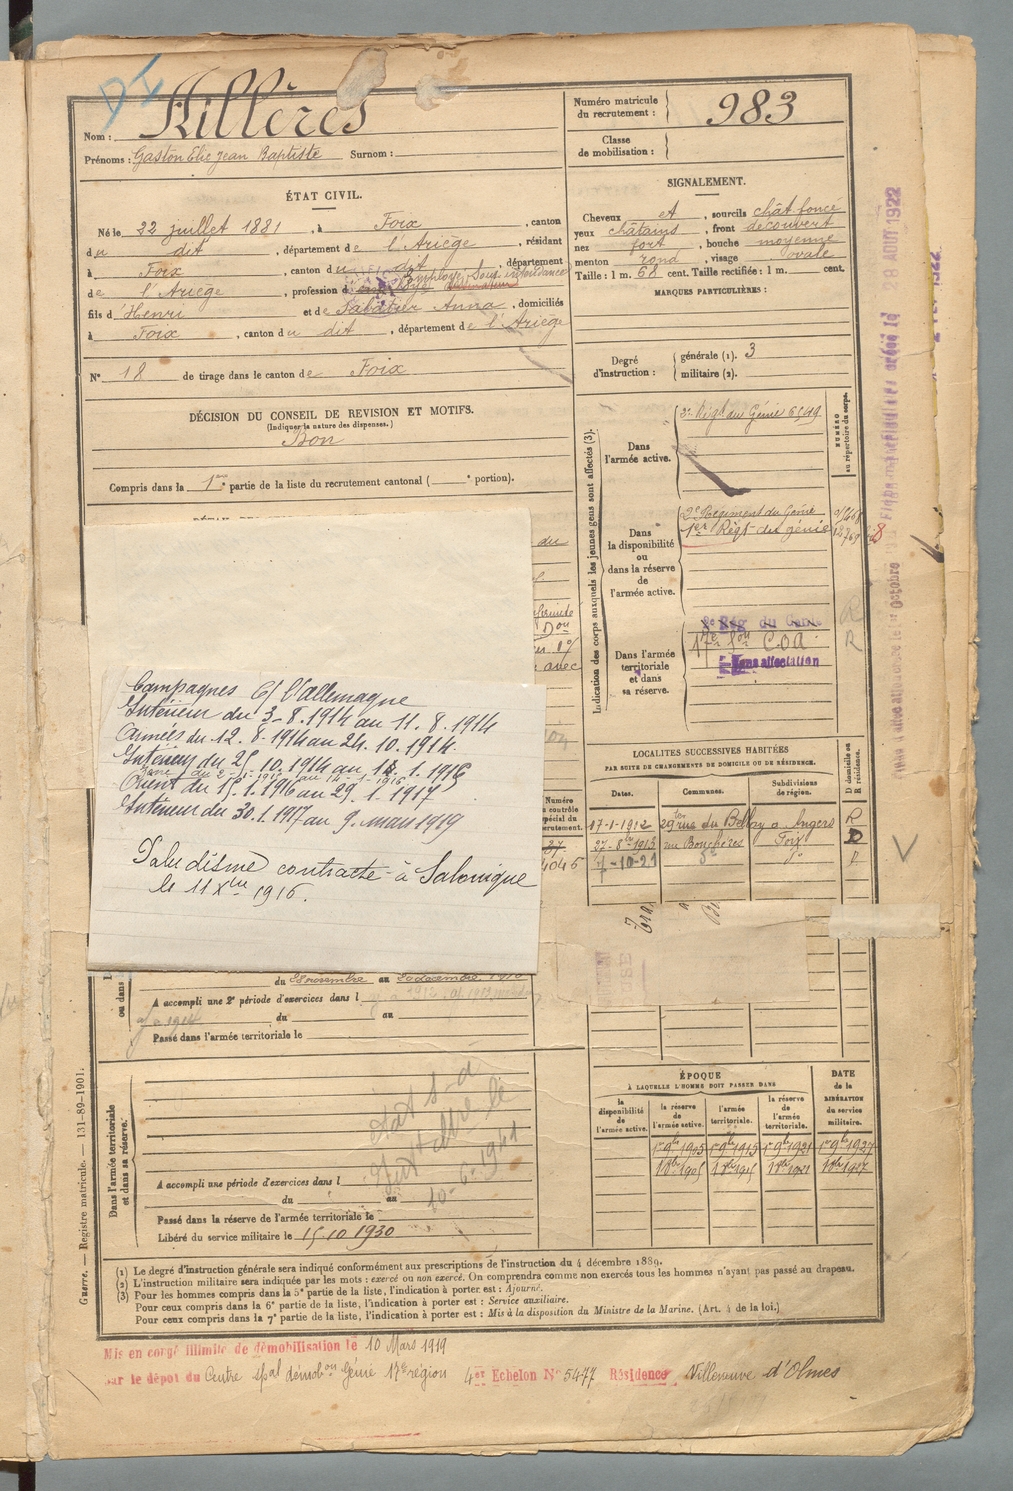 DI
Nom : Aillères
Prénoms : Gaston Elie Jean Baptiste Surnom :
Numéro matricule du recrutement : 983
Classe de mobilisation :
ÉTAT CIVIL.
Né le 22 juillet 1881, à Foix, canton
du dit, département de l'Ariège, résidant
à Foix, canton du dit, département
de l'Ariège, profession d Employé Sous intendance
fils d'Henri et de Sabatier Anna, domiciliés
à Foix, canton du dit, département de l'Ariège
N° 18 de tirage dans le canton de Foix
DÉCISION DU CONSEIL DE REVISION ET MOTIFS.
(Indiquer la nature des dispenses.)
Bon
Compris dans la 1re partie de la liste du recrutement cantonal ( e portion).
SIGNALEMENT.
Cheveux et, sourcils chât foncé
yeux châtains, front découvert
nez fort, bouche moyenne
menton rond, visage ovale
Taille : 1 m. 68 cent. Taille rectifiée : 1 m. cent.
MARQUES PARTICULIÈRES :
Degré d'instruction : générale (1). 3
militaire (2).
Indication des corps auxquels les jeunes gens sont affectés (3).
NUMÉRO au répertoire du corps.
Dans l'armée active.
2e Régt du Génie 6549
Dans la disponibilité ou dans la réserve de l'armée active.
2e Régiment du Génie
1er Régt du génie
Dans l'armée territoriale et dans sa réserve.
2e Rég. du Génie
17e Son COA
Sans affectation
R
R
du
avec
Campagnes C/ l'allemagne
Intérieur du 3-8.1914 au 11.8.1914
Armées du 12.8.1914 au 24.10.1914
Intérieur du 25.10.1914 au 1.1.1916
Orient du 15.1.1916 au 29.1.1917
Intérieur du 30.1.1917 au 9 mars 1919
Paludisme contracté à Salonique
le 11 Xbre 1916.
LOCALITES SUCCESSIVES HABITÉES
PAR SUITE DE CHANGEMENTS DE DOMICILE OU DE RÉSIDENCE.
Dates. Communes. Subdivisions de région. D domicile ou R résidence.
17-1-1912 29 rue du Bellay a Angers R
27-8bre 1913 rue Bouchères Foix D
7-10-21
Numéro
4046
ou dans
du 28 novembre au 20 décembre 1910
A accompli une 2e période d'exercices dans l
du au
Passé dans l'armée territoriale le
Dans l'armée territoriale et dans sa réserve.
10-6-1941
A accompli une période d'exercices dans l
du au
Passé dans la réserve de l'armée territoriale le
Libéré du service militaire le 15.10 1930
ÉPOQUE
À LAQUELLE L'HOMME DOIT PASSER DANS
la disponibilité de l'armée active. la réserve de l'armée active. l'armée territoriale. la réserve de l'armée territoriale. DATE de la LIBÉRATION du service militaire.
1er 9bre 1905 1er 9bre 1915 1er 9bre 1921 1er 9bre 1927
Guerre. — Registre matricule. — 131-89-1901.
(1) Le degré d'instruction générale sera indiqué conformément aux prescriptions de l'instruction du 4 décembre 1889.
(2) L'instruction militaire sera indiquée par les mots : exercé ou non exercé. On comprendra comme non exercés tous les hommes n'ayant pas passé au drapeau.
(3) Pour les hommes compris dans la 5e partie de la liste, l'indication à porter est : Ajourné.
Pour ceux compris dans la 6e partie de la liste, l'indication à porter est : Service auxiliaire.
Pour ceux compris dans la 7e partie de la liste, l'indication à porter est : Mis à la disposition du Ministre de la Marine. (Art. 4 de la loi.)
Mis en congé illimité de démobilisation le 10 Mars 1919
par le dépôt du Centre spal démobon Génie 17e région 4er Echelon N° 5477 Résidence Villeneuve d'Olmes
28 AOUT 1922